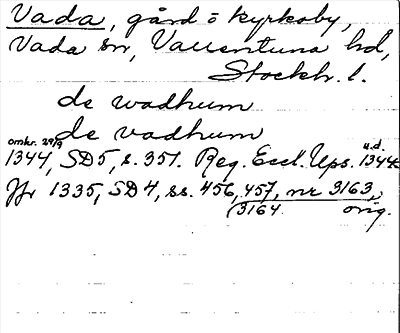 Vada, gård o kyrkoby,
Vada sn, Vallentuna hd,
Stockh. l.
de wadhum
de vadhum
omkr. 29/9 u.d.
1344, SD5, s. 351. Reg. Eccl. Ups. 1344
Jfr 1335, SD4, ss. 456, 457, nr 3163,
3164. orig.